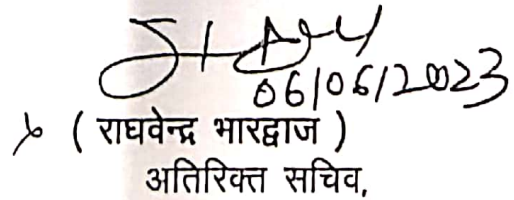 06/06/2023
( राघवेन्द्र भारद्वाज )
अतिरिक्त सचिव,